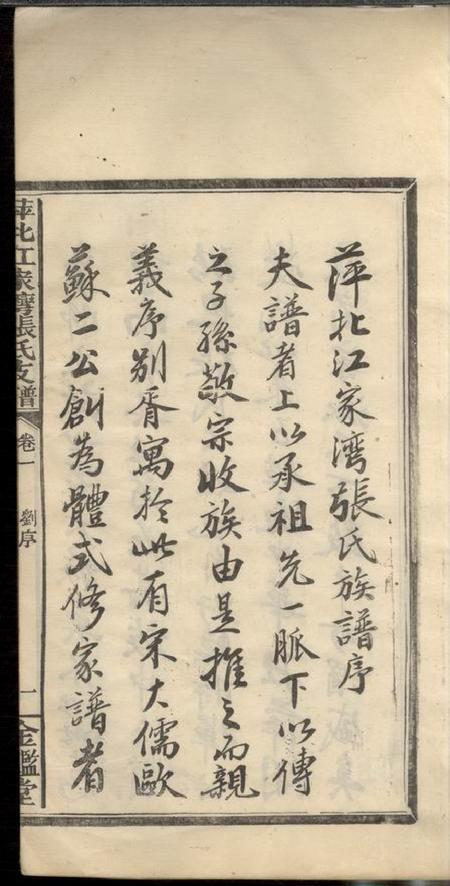 萍北江家湾張氏族譜序
夫譜者上以承祖先一脈下以傳
之子孫敬宗收族由是推之而親
義序别胥寓於此有宋大儒歐
蘇二公創為體式修家譜者
萍北江家灣張氏支譜 卷一 劉序 一 金鑑堂